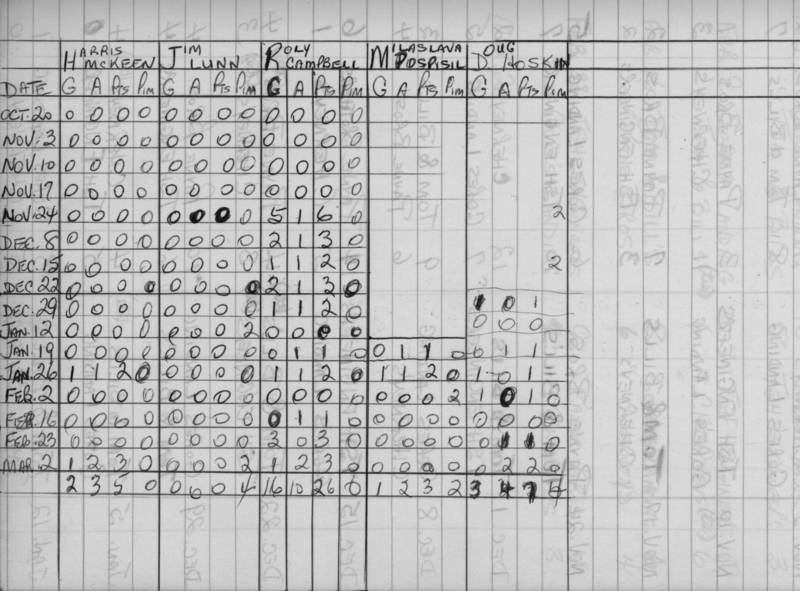 HARRIS MCKEEN JIM LUNN ROLY CAMPBELL MILASLAVA POSPISIL DOUG HOSKIN
DATE G A Pts Pim G A Pts Pim G A Pts Pim G A Pts Pim G A Pts Pim
OCT. 20 0 0 0 0 0 0 0 0 0 0 0 0
NOV. 3 0 0 0 0 0 0 0 0 0 0 0 0
NOV. 10 0 0 0 0 0 0 0 0 0 0 0 0
NOV. 17 0 0 0 0 0 0 0 0 0 0 0 0
NOV. 24 0 0 0 0 0 0 0 0 5 1 6 0 2
DEC. 8 0 0 0 0 0 0 0 0 2 1 3 0
DEC. 15 0 0 0 0 0 0 0 0 1 1 2 0 2
DEC 22 0 0 0 0 0 0 0 0 2 1 3 0
DEC. 29 0 0 0 0 0 0 0 0 1 1 2 0 1 0 1
JAN. 12 0 0 0 0 0 0 0 2 0 0 0 0 0 0 0
JAN. 19 0 0 0 0 0 0 0 0 0 1 1 0 0 1 1 0 0 1 1
JAN. 26 1 1 2 0 0 0 0 0 1 1 2 0 1 1 2 0 1 0 1
FEB. 2 0 0 0 0 0 0 0 0 0 0 0 0 0 0 0 2 1 0 1 0
FEB. 16 0 0 0 0 0 0 0 0 0 1 1 0 0 0 0 0 0 0 0 0
FEB. 23 0 0 0 0 0 0 0 0 3 0 3 0 0 0 0 0 0 1 1 0
MAR. 2 1 2 3 0 0 0 0 2 1 2 3 0 0 0 0 0 0 2 2 0
2 3 5 0 0 0 0 4 16 10 26 0 1 2 3 2 3 4 7 4